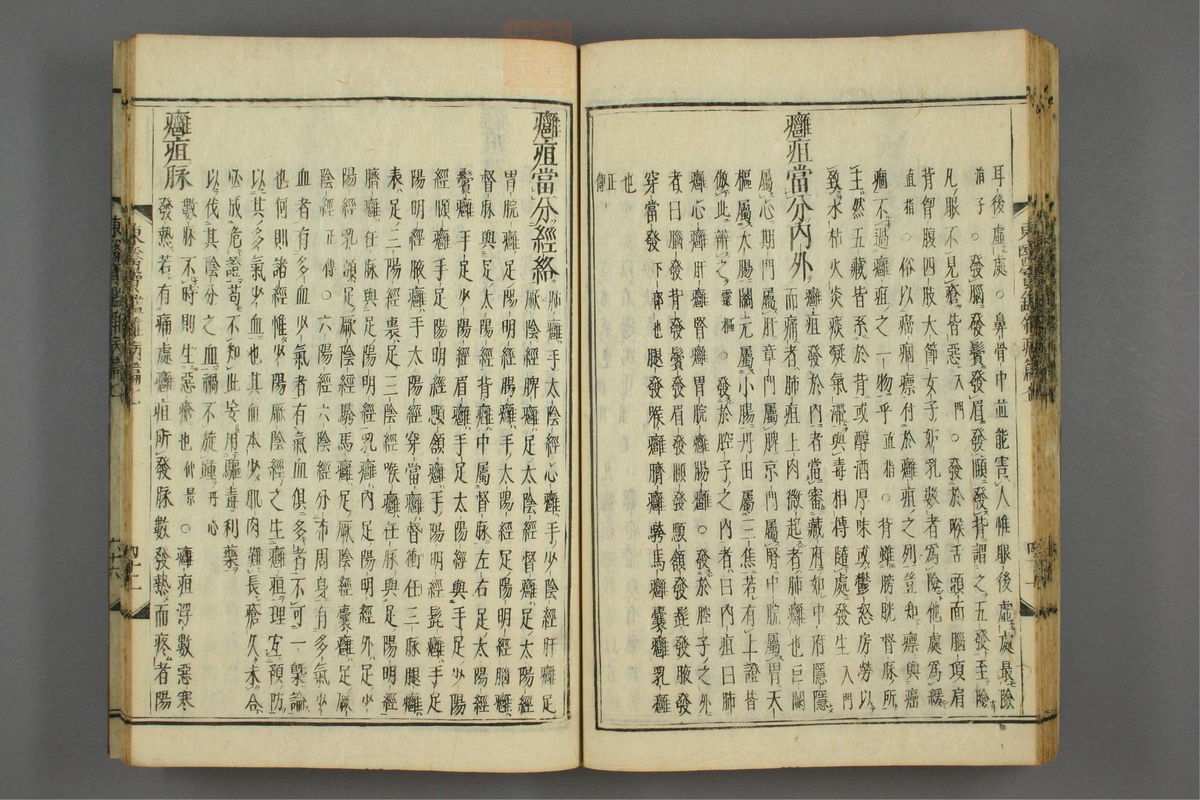 耳後虛處○鼻骨中並能害人惟脲後虛處最險
消子○發腦發鬢發眉發頤發背謂之五發至險
凡脲不見瘡皆惡入門○發於喉舌頭面腦項肩
背胷腹四肢大節女子妬乳數者爲險他處爲緩
直指○俗以癌痼瘭付於癰疽之列豈知瘭與癌
痼不過癰疽之一物乎直指○背雖膀胱督脉所
主然五藏皆系於背或醇酒厚味或鬱怒房勞以
致水枯火炎痰凝氣滯與毒相傳隨處發生入門
癰疽當分內外癰疽發於內者當審藏府如中府隱隱
而痛者肺疽上肉微起者肺癰也巨闕
屬心期門屬肝章門屬脾京門屬腎中脘屬胃天
樞屬大腸關元屬小腸丹田屬三焦若有上證皆
倣此辨之靈樞○發於腔子之內者曰內疽曰肺
癰心癰肝癰腎癰胃脘癰腸癰○發於腔子之外
者曰腦發背發鬢發眉發頤發顋頷發髭發腋發
穿當發下部也腿發喉癰臍癰騎馬癰囊癰乳癰
也正傳
癰疽當分經絡肺癰手太陰經心癰手少陰經肝癰足
厥陰經脾癰足太陰經腎癰足少陰經
胃脘癰足陽明經腸癰手太陽經足陽明經腦癰
督脉與足太陽經背癰中屬督脉左右足太陽經
鬢癰手足少陽經眉癰手足太陽經與手足少陽
經頤癰足陽明經顋頷癰手陽明經髭癰手足
陽明經腋癰手太陽經穿當癰督衝任三脉腿癰
表足三陽經裏足三陰經喉癰任脉與足陽明經
臍癰任脉與足陽明經乳癰內足陽明經外足少
陽經乳頭足厥陰經騎馬癰足厥陰經囊癰足厥
陰經正傳○六陽經六陰經分布周身有多氣少
血者有多血少氣者有氣血俱多者不可一槩論
也何則諸經惟少陽厥陰經之生癰疽理宜預防
以其多氣少血也其血本少肌肉難長瘡久未合
必成危證苟不知此妄用驅毒利藥
以伐其陰分之血禍不旋踵丹心
癰疽脉數脉不時則生惡瘡也仲景○癰疽浮數惡寒
發熱若有痛處癰疽所發脉數發熱而疼者陽
東醫寶鑑雜病篇